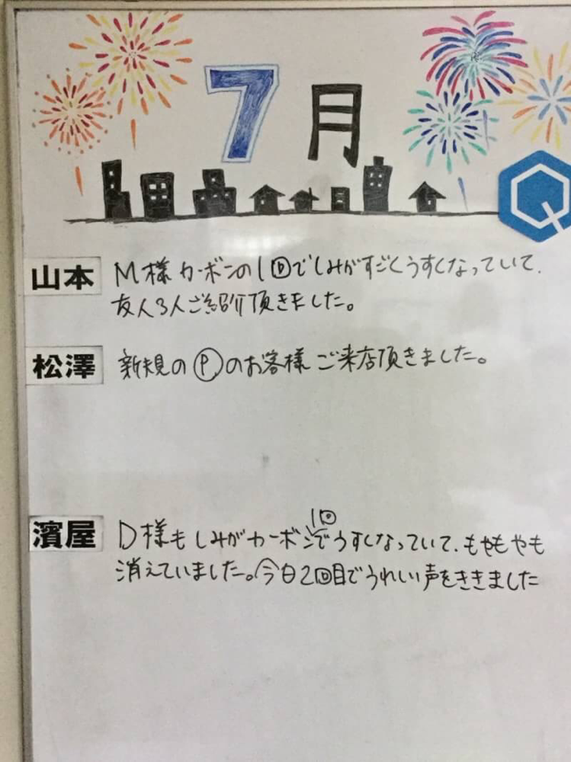 7月
山本 M様 カーボンの1回でしみがすごくうすくなっていて、
友人3人ご紹介頂きました。
松澤 新規のⓅのお客様 ご来店頂きました。
1回
濱屋 D様も しみがカーボンでうすくなっていて、もやもやも
消えていました。今日2回目でうれしい声をききました